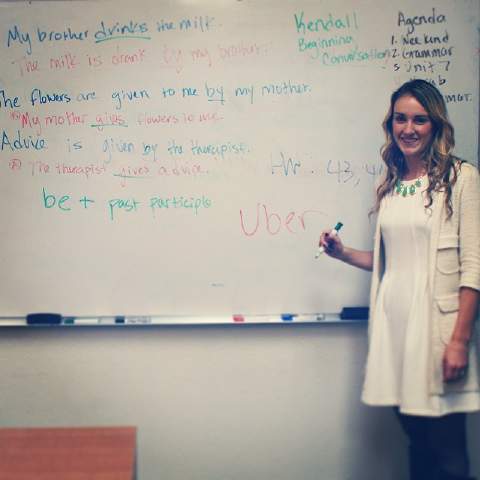 My brother drinks the milk.
The milk is drank by my brother.
The flowers are given to me by my mother.
My mother gives flowers to me.
Advice is given by the therapist.
The therapist gives advice.
be + past participle
Kendall
Beginning
Conversation
Agenda
1. Weekend
2. Grammar
3 Unit 7
HW: 43, 4
Uber